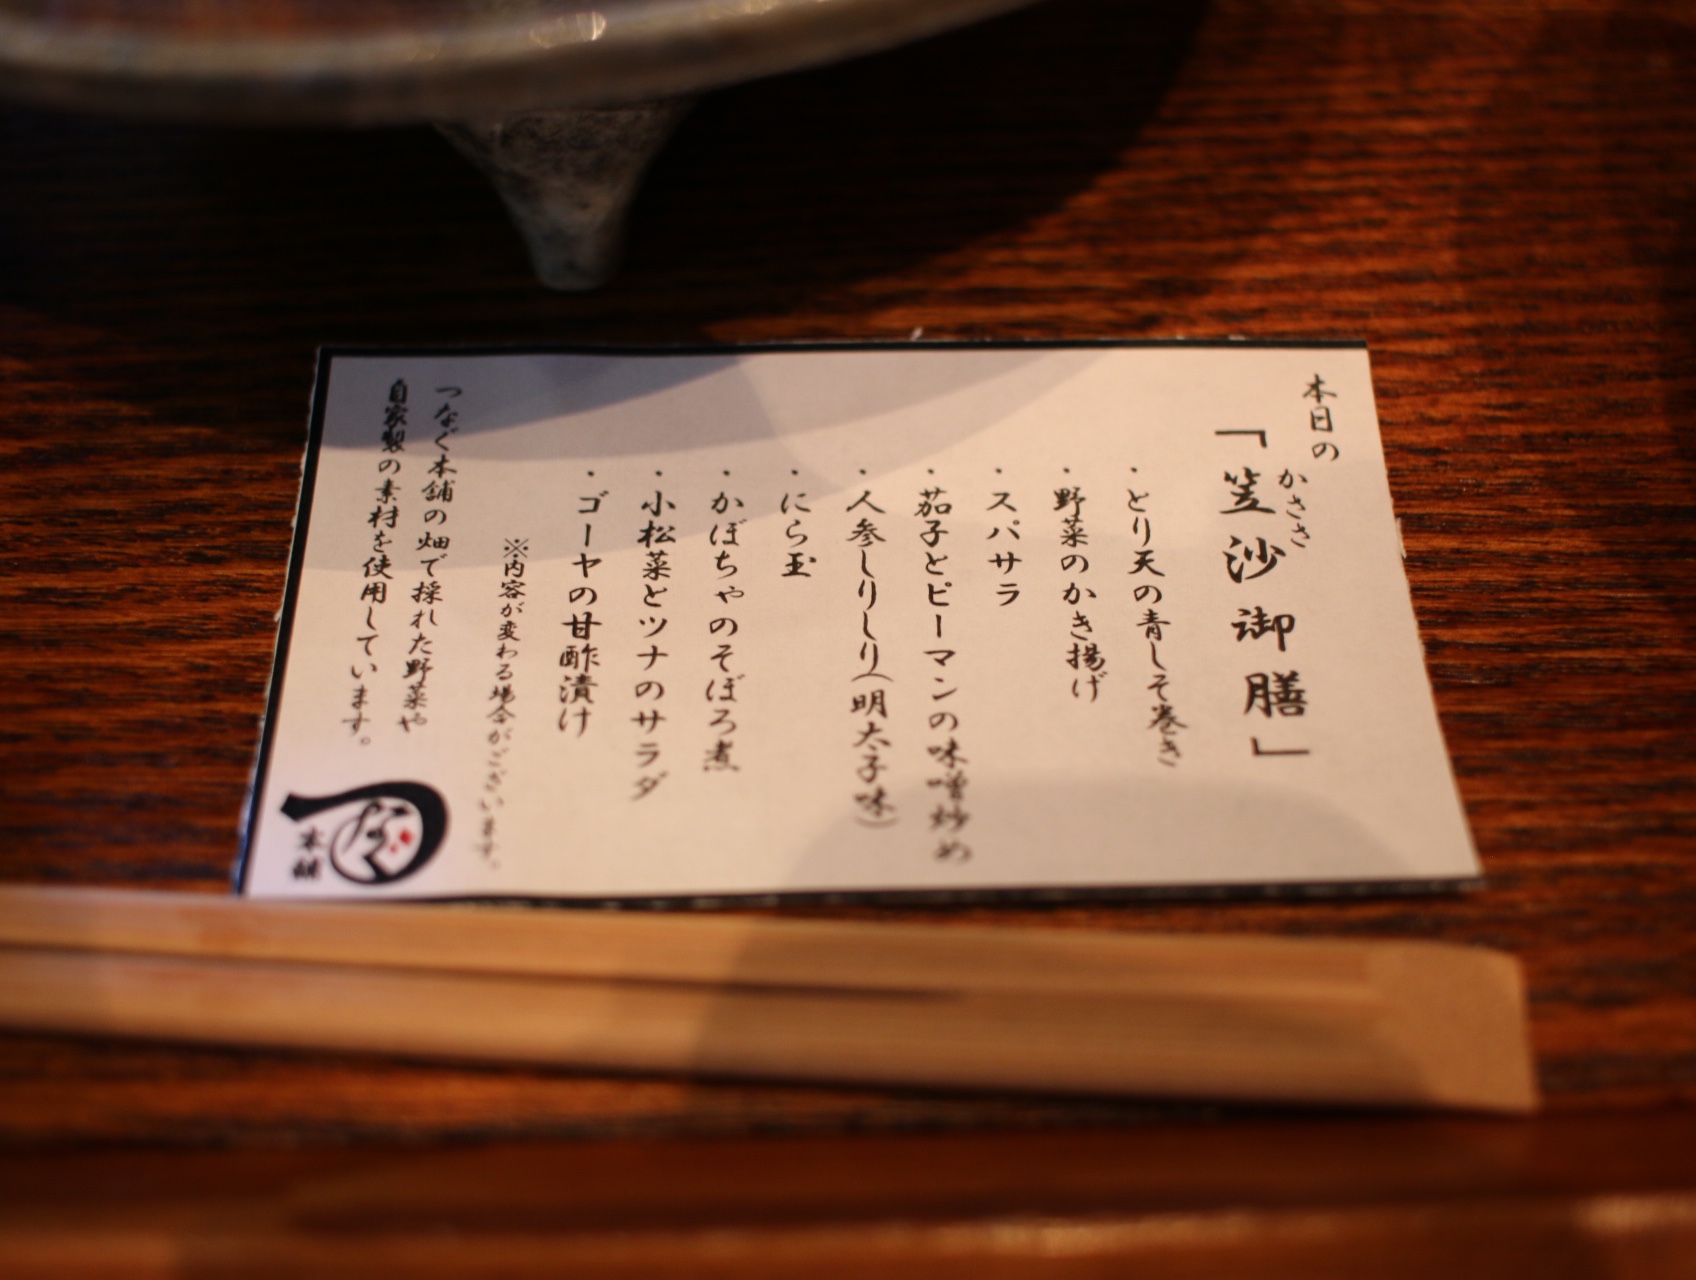 本日の
かささ
「笠沙御膳」
・とり天の青しそ巻き
・野菜のかき揚げ
・スパサラ
・茄子とピーマンの味噌炒め
・人参しりしり(明太子味)
・にら玉
・かぼちゃのそぼろ煮
・小松菜とツナのサラダ
・ゴーヤの甘酢漬け
※内容が変わる場合がございます。
つなぐ本舗の畑で採れた野菜や
自家製の素材を使用しています。
つなぐ
本舗